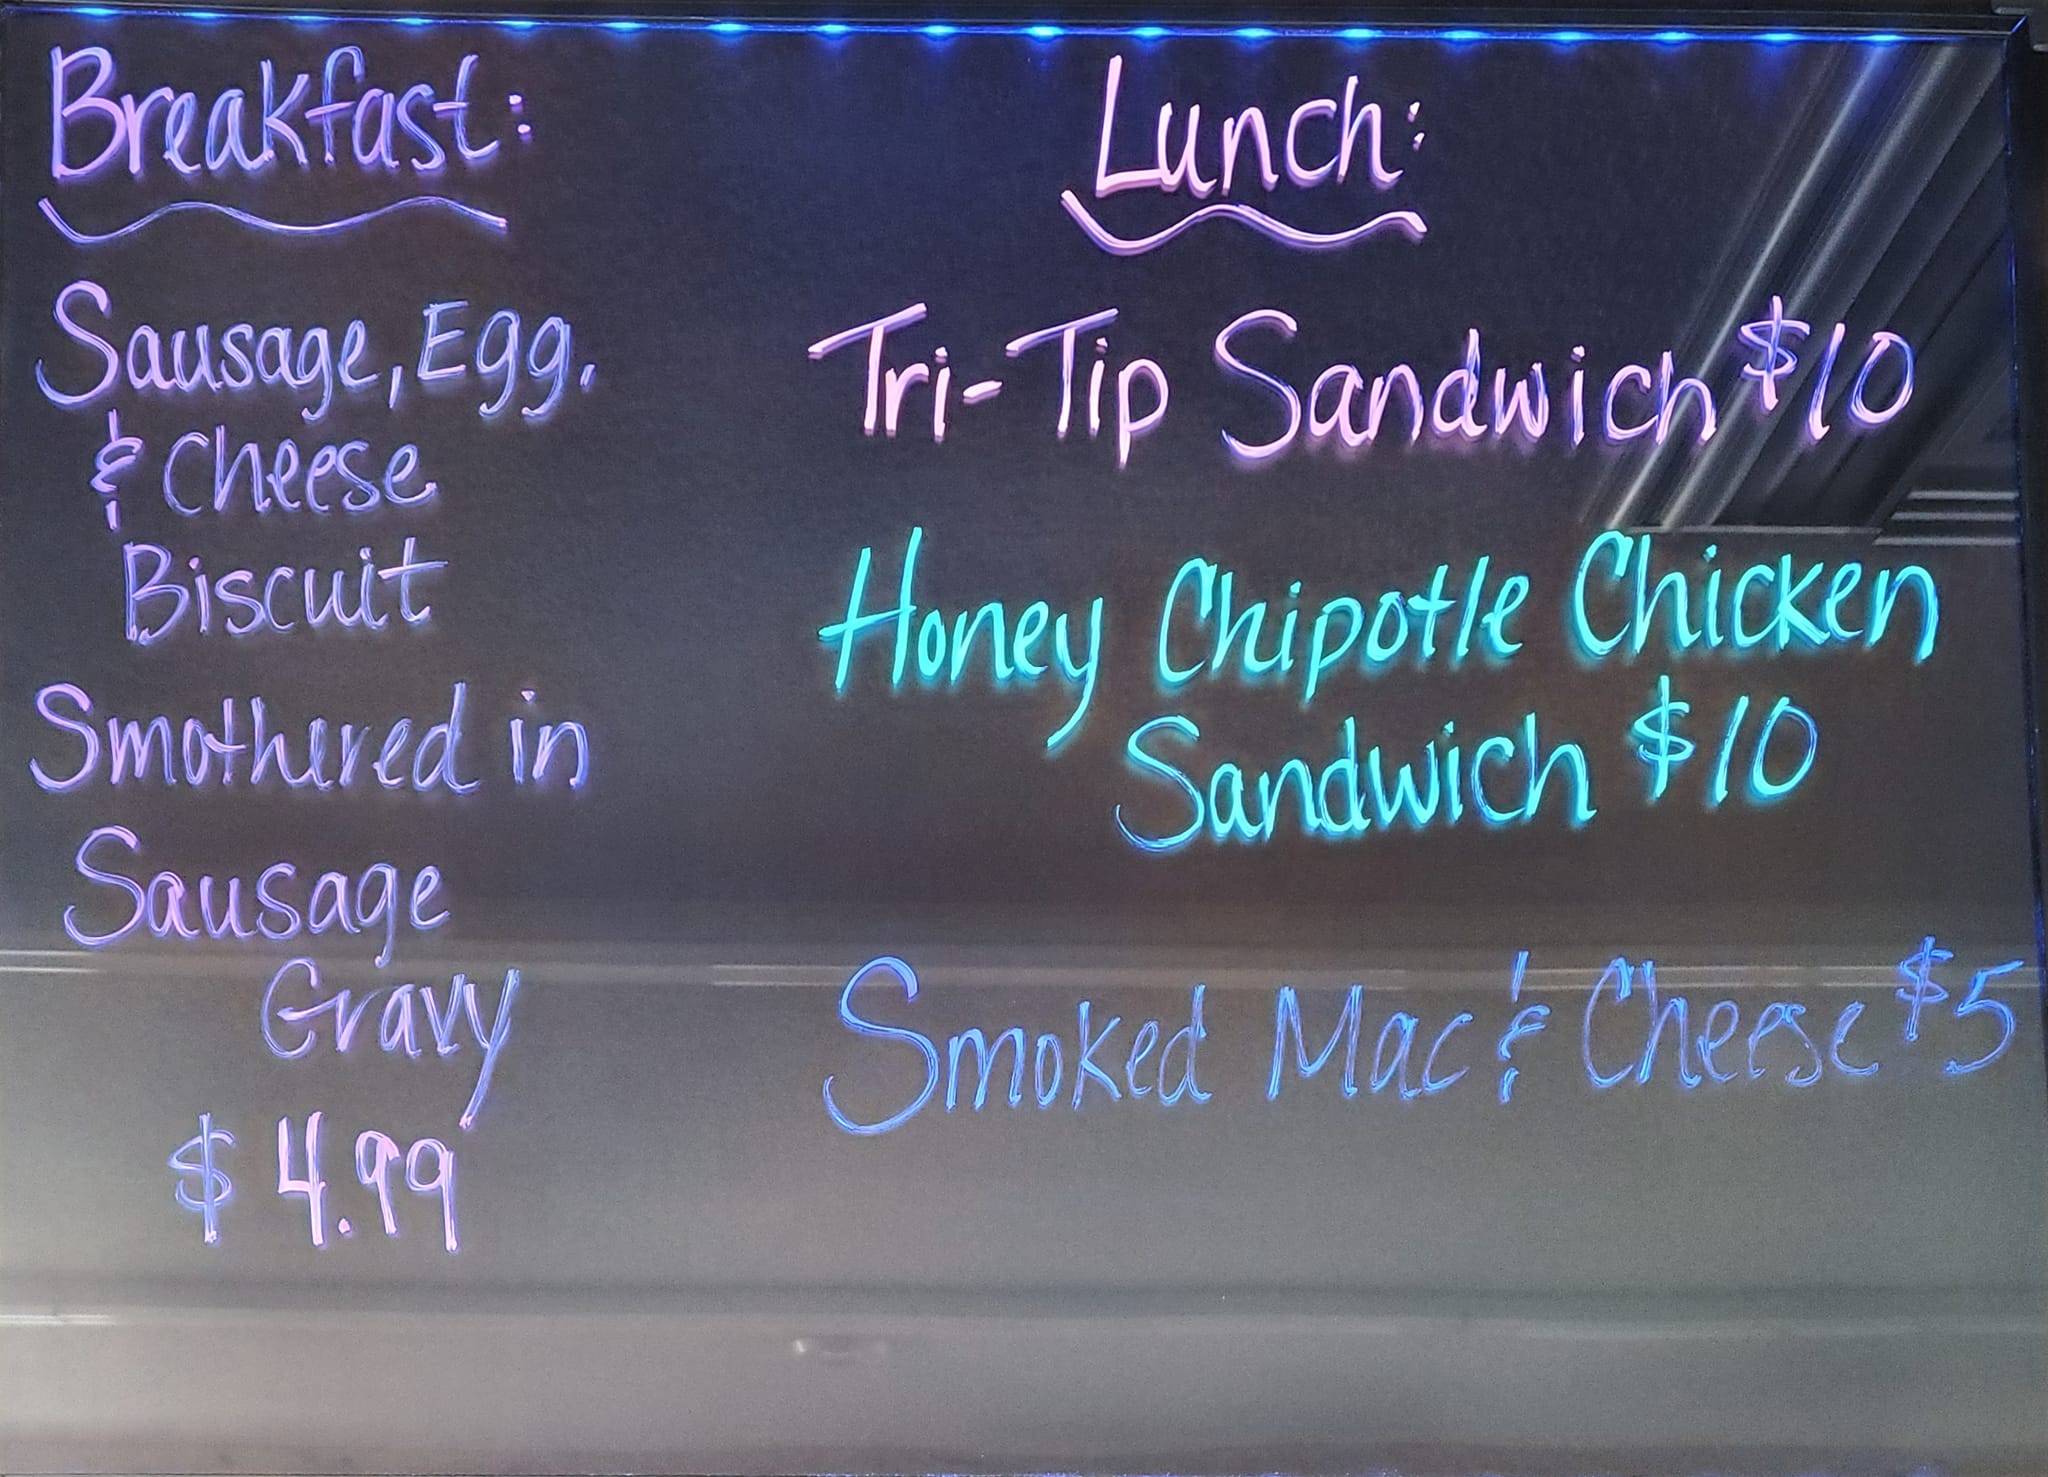 Breakfast:
Sausage, Egg,
& Cheese
Biscuit
Smothered in
Sausage
Gravy
$4.99
Lunch:
Tri-Tip Sandwich $10
Honey Chipotle Chicken
Sandwich $10
Smoked Mac & Cheese $5